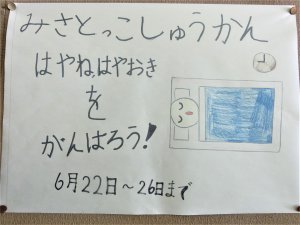 みさとっこしゅうかん
はやね、はやおき
を
がんばろう!
6月22日～26日まで